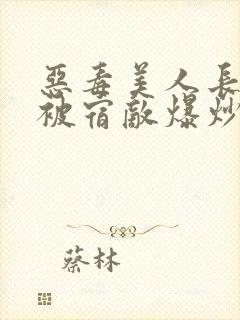 惡毒美人長
被宿敵爆炒
蔡林